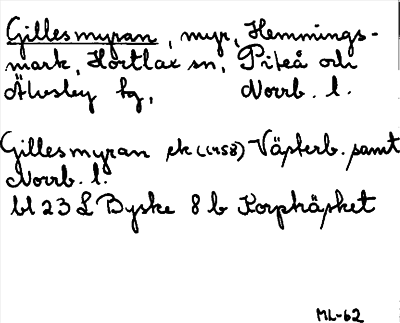 Gillesmyran, myr, Hemmings-
mark, Hortlax sn, Piteå och
Älvsby tg, Norrb. l.
Gillesmyran ek (1958) Västerb. samt
Norrb. l.
bl 23 L Byske 8 b Korphäsket
ML-62